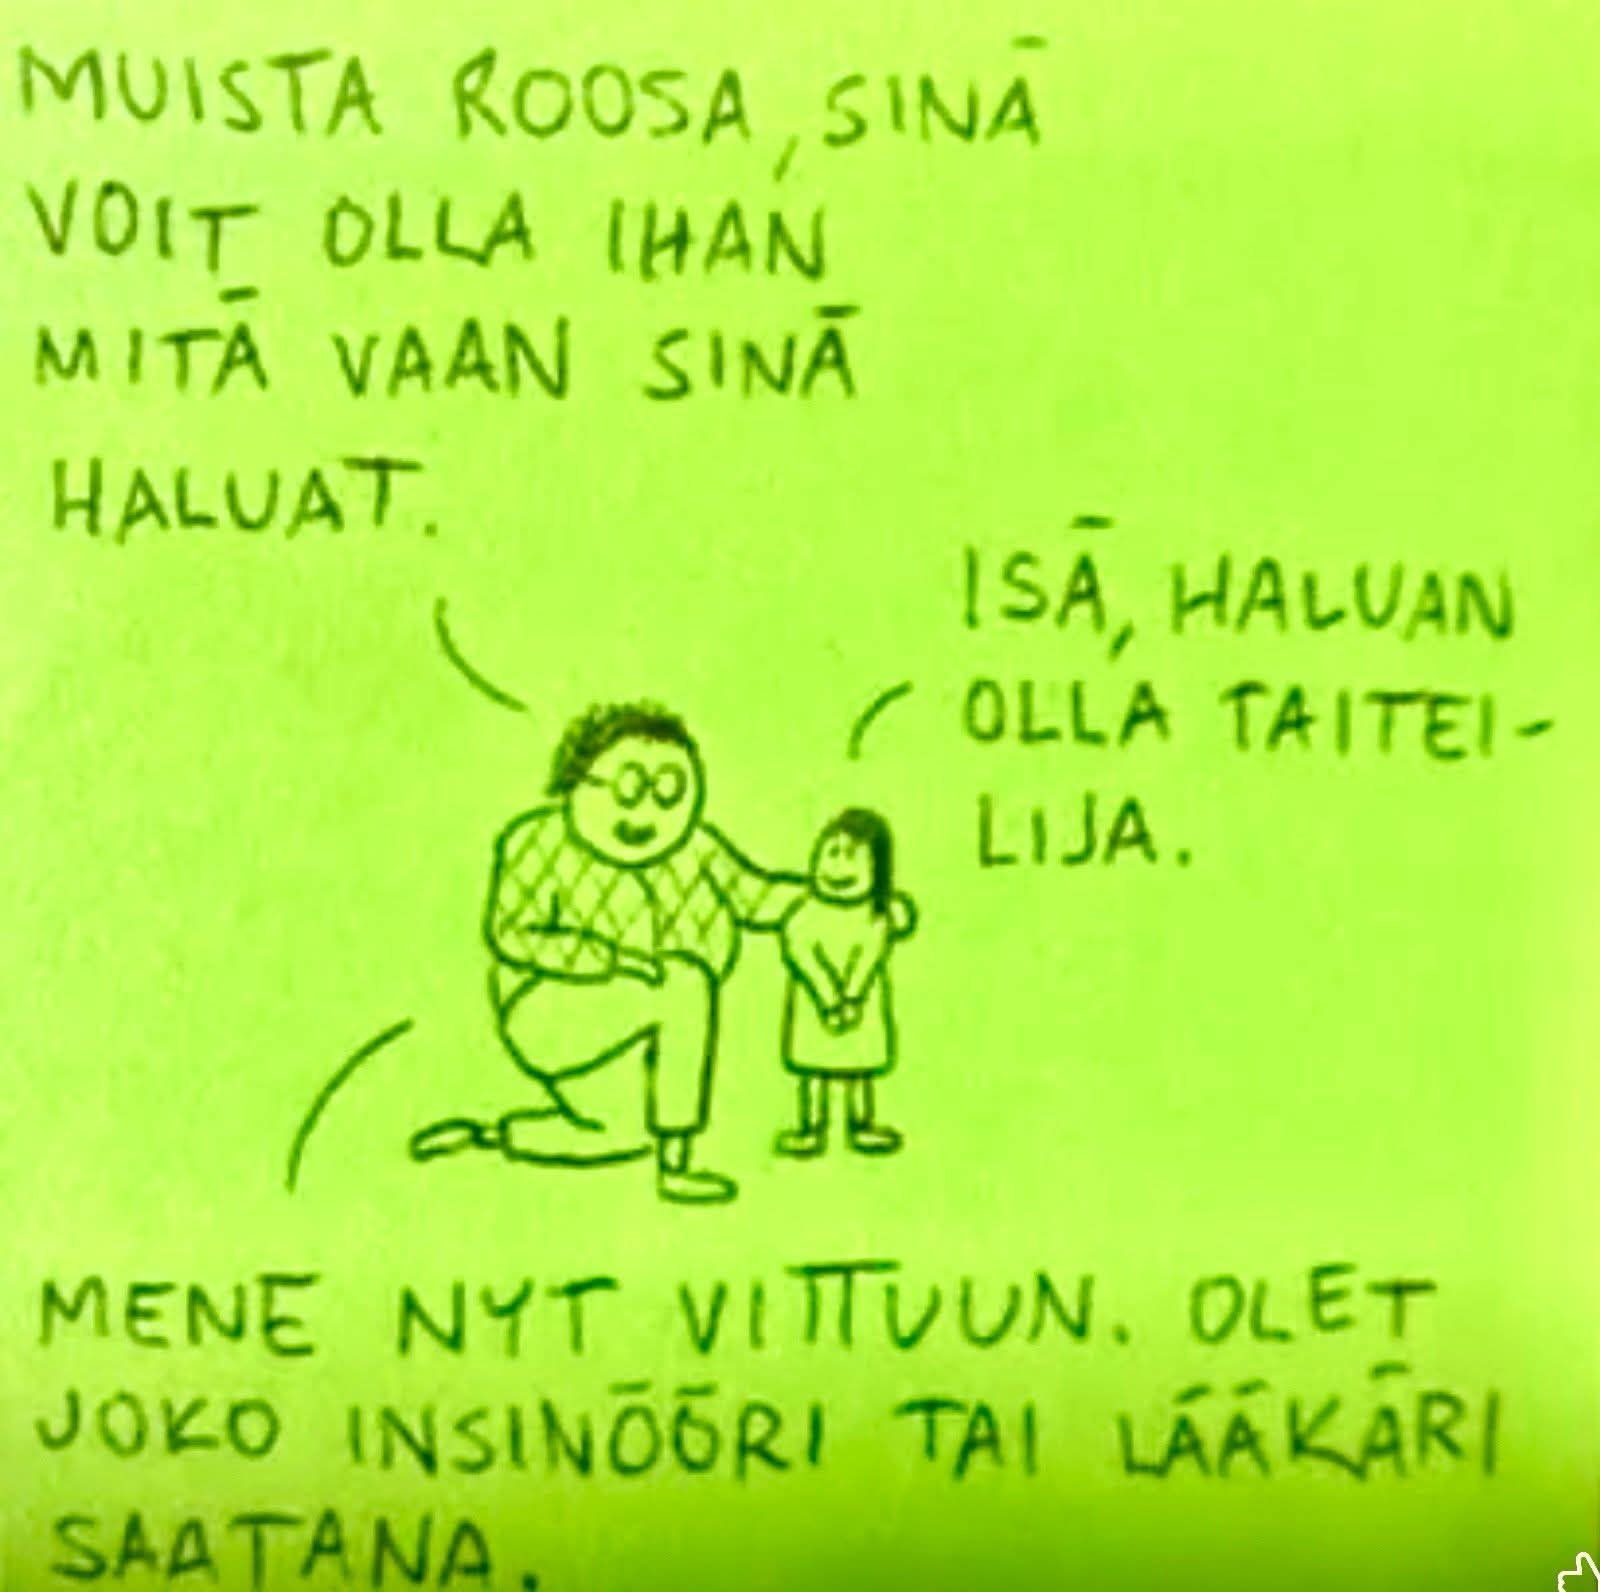 MUISTA ROOSA, SINÄ
VOIT OLLA IHAN
MITÄ VAAN SINÄ
HALUAT.
ISÄ, HALUAN
OLLA TAITEI-
LIJA.
MENE NYT VITTUUN. OLET
JOKO INSINÖÖRI TAI LÄÄKÄRI
SAATANA.